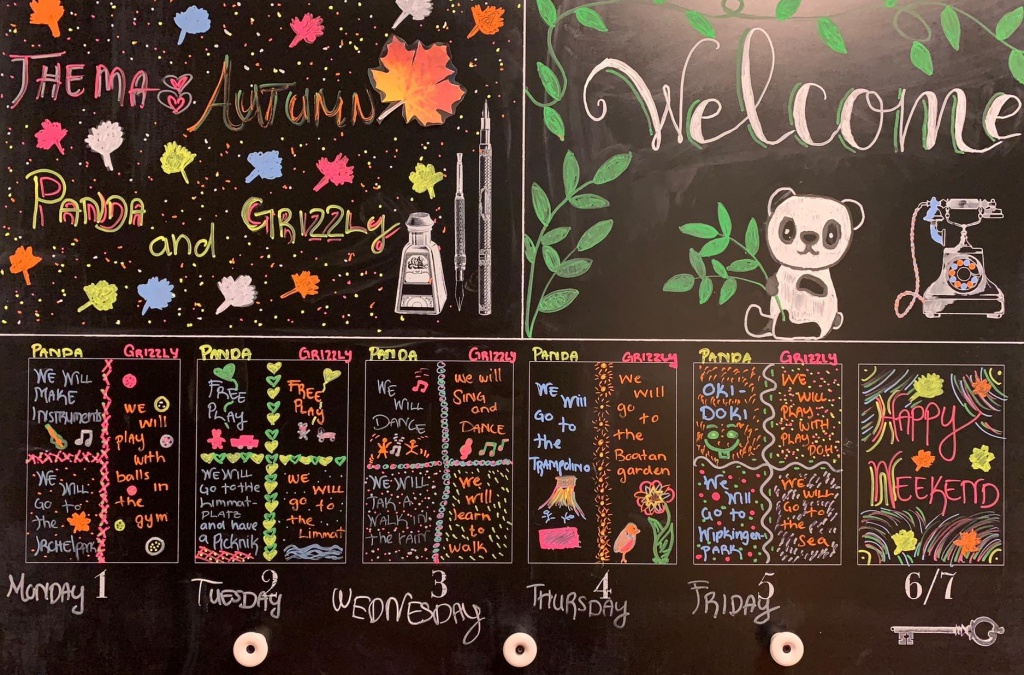 THEMA
AUTUMN
PANDA
and
GRIZZLY
Welcome
PANDA GRIZZLY
WE WILL
MAKE
INSTRUMENTS
WE WILL
GO to
the
WE
will
play
with
balls
in
the
gym
MONDAY 1
PANDA GRIZZLY
FREE
PLAY
FREE
PLAY
WE WILL
Go to the
Limmat
PLATZ
and have
a Picknik
WE
WILL
go to
the
Limmat
TUESDAY 2
PANDA GRIZZLY
WE
WILL
DANCE
we will
SING
and
DANCE
WE WILL
TAKE A
WALK IN
THE RAIN
We
will
learn
to
walk
WEDNESDAY 3
PANDA GRIZZLY
WE Will
Go to
the
TRAMPOLINO
We
will
go
to
the
Boatan
garden
THURSDAY 4
PANDA GRIZZLY
OKI-
DOKI
WE
WILL
PLAY
WITH
PLAY
DOH
We
Will
Go to
WipKingen-
PARK
WE
WILL
Go to
the
sea
FRIDAY 5
HAPPY
WEEKEND
6/7